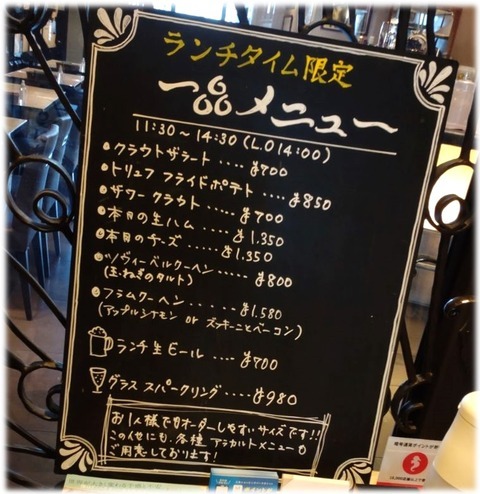 ランチタイム限定
一品メニュー
11:30～14:30(L.O 14:00)
クラウトザラート ····¥700
トリュフ フライドポテト ····¥850
ザワークラウト ·····¥700
本日の生ハム ····¥1.350
本日のチーズ ·····¥1.350
ツヴィーベルクーヘン ····¥800
(玉ねぎのタルト)
フラムクーヘン ·····¥1.580
(アップルシナモン or ズッキーニとベーコン)
ランチ生ビール ····¥700
グラス スパークリング ·····¥980
お1人様でもオーダーしやすいサイズです!!
この他にも、各種 アラカルトメニューも
ご用意しております!